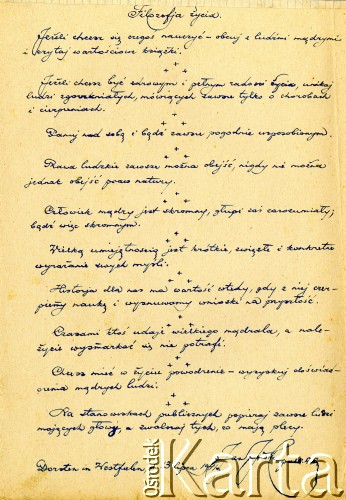 Filozofja życia.
Jeżeli chcesz się czegoś nauczyć – obcuj z ludźmi mądrymi
i czytaj wartościowe książki.
+ + +
Jeżeli chcesz być zdrowym i pełnym radości życia, unikaj
ludzi zgorzkniałych, mówiących zawsze tylko o chorobach
i cierpieniach.
+ + +
Panuj nad sobą i bądź zawsze pogodnie usposobionym.
+ + +
Prawa ludzkie zawsze można obejść, nigdy nie można
jednak obejść praw natury.
+ + +
Człowiek mądry jest skromny, głupi zaś zarozumiały;
bądź więc skromnym.
+ + +
Wielką umiejętnością jest krótkie, zwięzłe i konkretne
wyrażanie swych myśli.
+ + +
Historja dla nas ma wartość wtedy, gdy z niej czer-
piemy naukę i wysnuwamy wnioski na przyszłość.
+ + +
Czasami ktoś udaje wielkiego mądrala, a nale-
życie wysmarkać się nie potrafi.
+ + +
Chcesz mieć w życiu powodzenie – wyzyskuj doświad-
czenia mądrych ludzi.
+ + +
Na stanowiskach publicznych popieraj zawsze ludzi
mających głowy, a zwalczaj tych, co mają plecy.
Dorsten in Westfalen lipca
Ośrodek
Karta